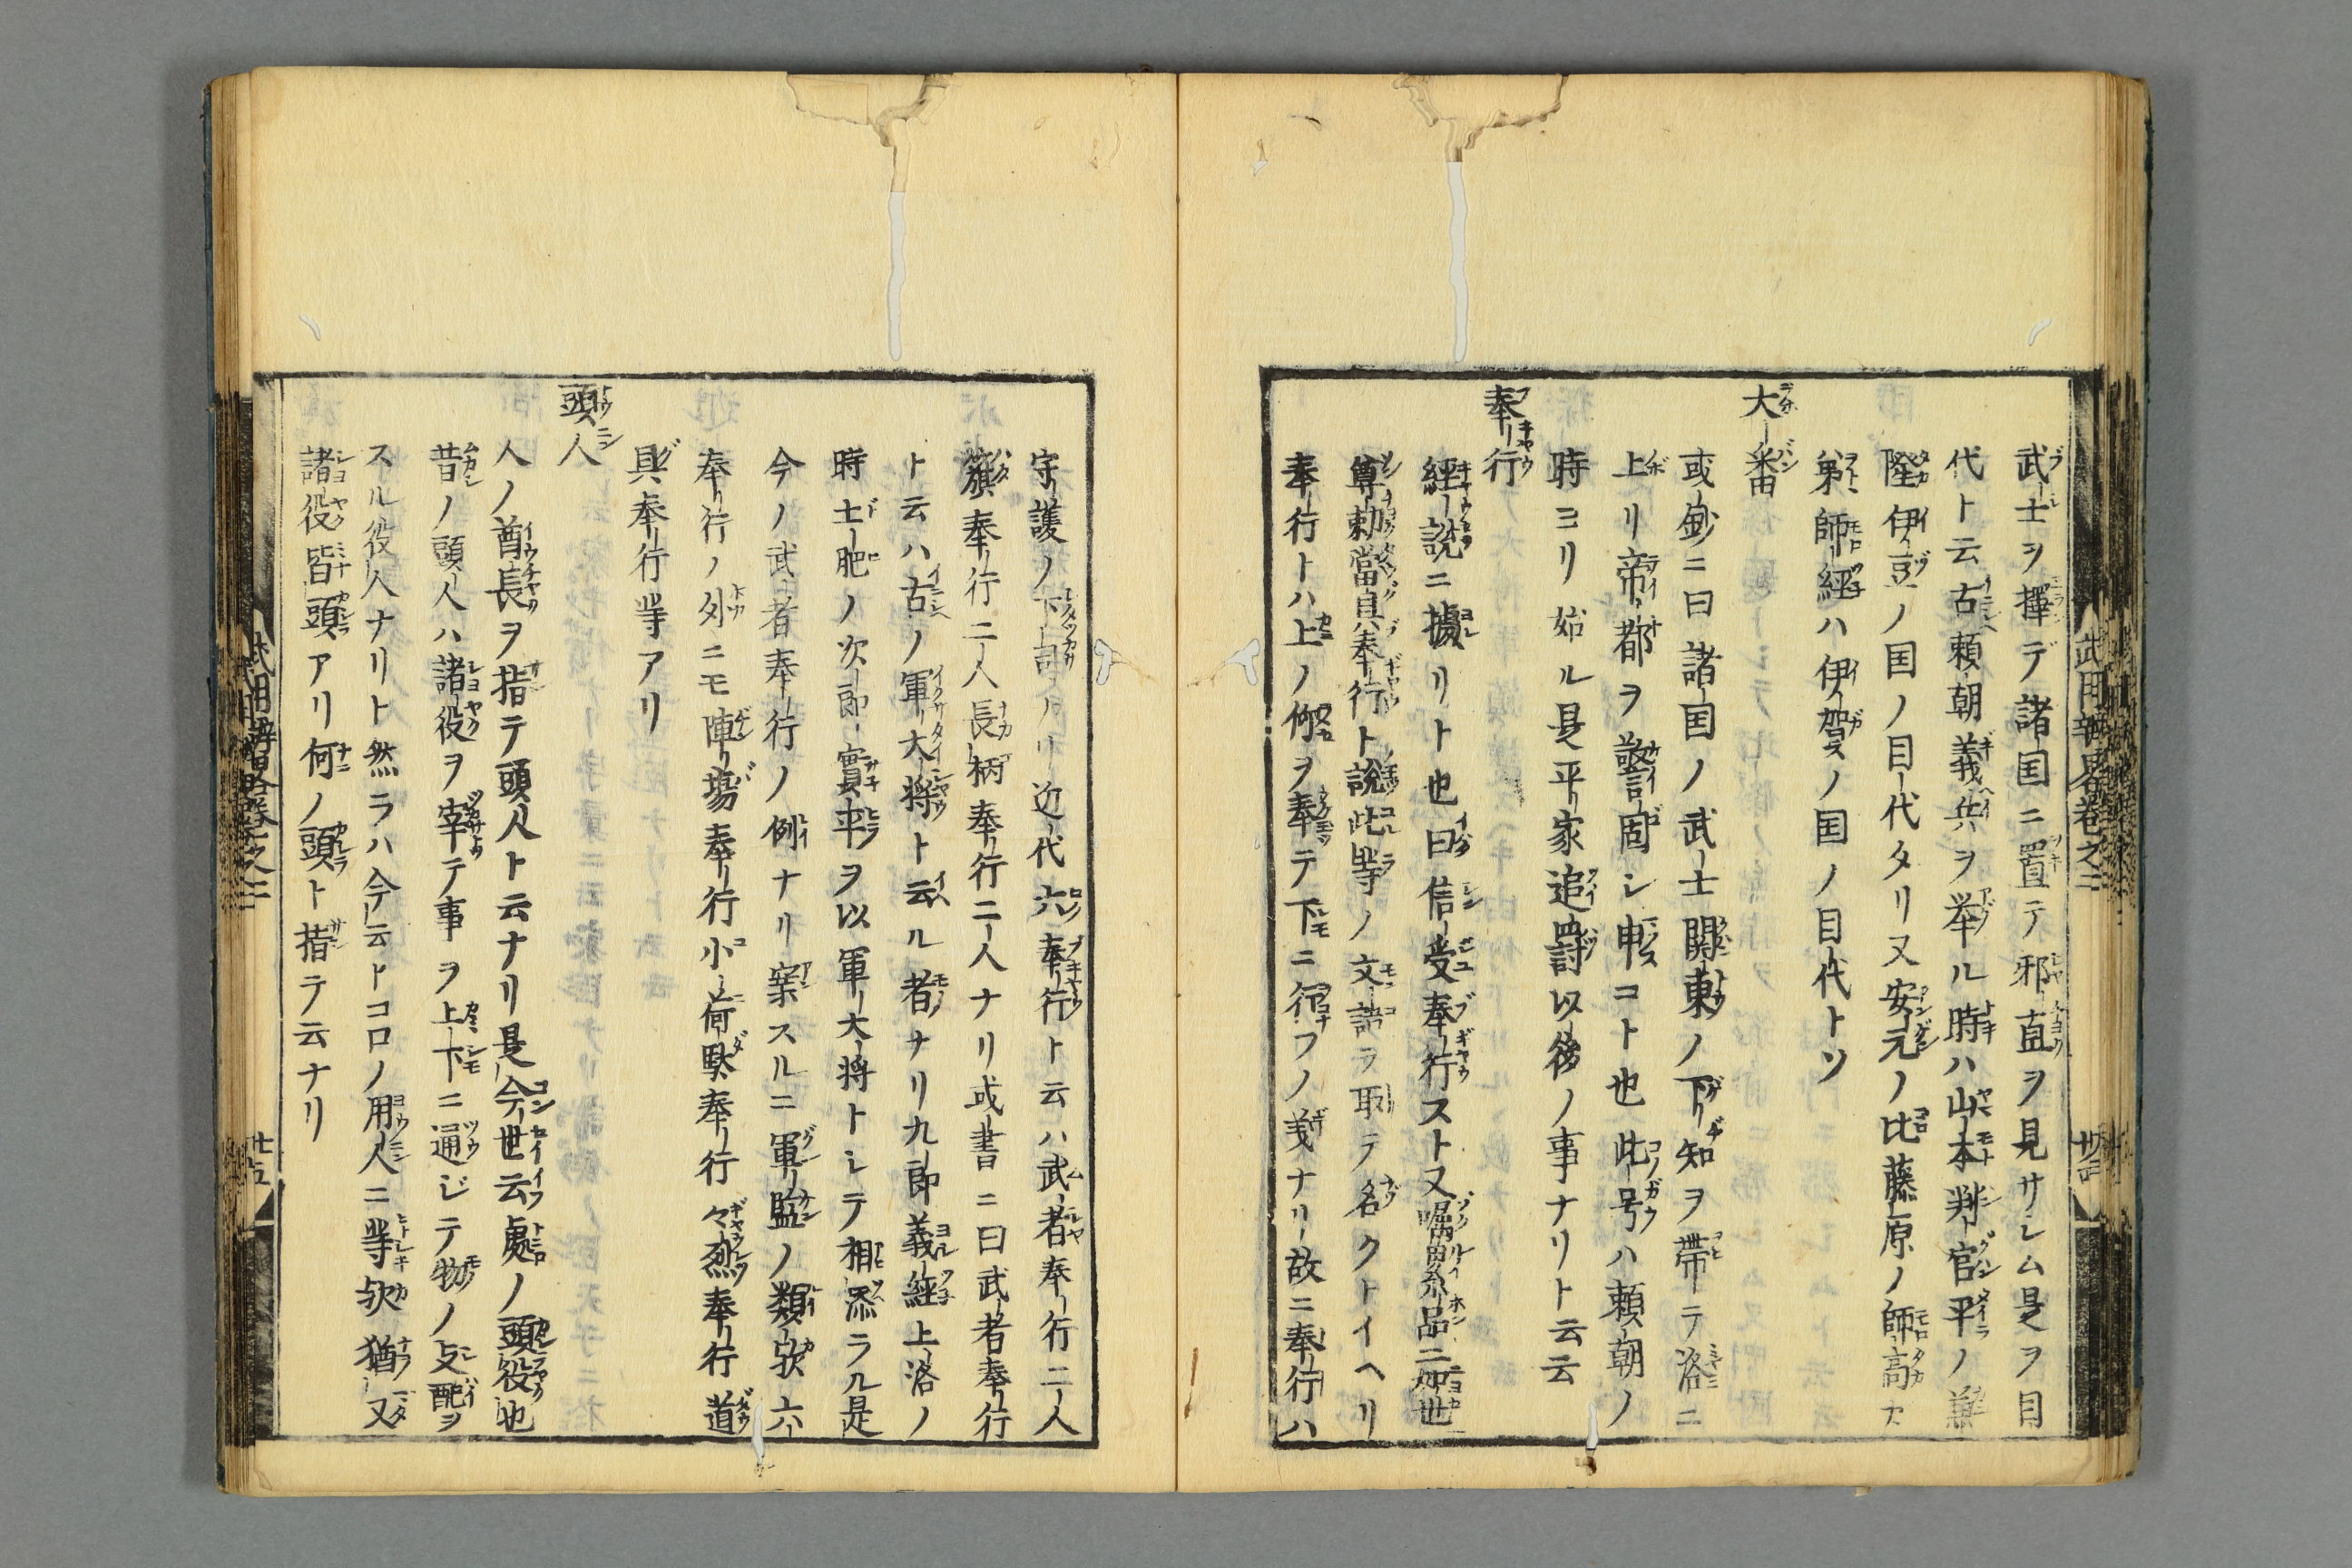 武士ヲ擇デ諸国ニ置テ邪直ヲ見サレム是ヲ目
代ト云古頼朝義兵ヲ挙ル時ハ山本判官平ノ兼
隆伊豆ノ国ノ目代タリ又安元ノ比藤原ノ師高カ
弟師經ハ伊賀ノ国ノ目代トソ
大番
或鈔ニ曰諸国ノ武士關東ノ下知ヲ帶テ洛ニ
上リ帝都ヲ警固シ申コト也此号ハ頼朝ノ
時ヨリ始ル是平家追罸以後ノ事ナリト云云
奉行
經説ニ據リト也曰信受奉行スト又囑累品ニ如世
尊勅當具奉行ト説此等ノ文語ヲ取テ名クトイヘリ
奉行トハ上ノ修ヲ奉テ下ニ行フノ義ナリ故ニ奉行ハ
武用辨畧巻之二
守護ノ下司ナリ近代六奉行ト云ハ武者奉行二人
籏奉行二人長柄奉行二人ナリ或書ニ曰武者奉行
ト云ハ古ノ軍大將ト云ル者ナリ九郎義經上洛ノ
時土肥ノ次郎實平ヲ以軍大将トレテ相添ラル是
今ノ武者奉行ノ例ナリ案スルニ軍監ノ類欤六
奉行ノ外ニモ陣場奉行小荷駄奉行々烈奉行道
具奉行等アリ
頭人
人ノ酋長ヲ指テ頭人ト云ナリ是今世云處ノ頭役也
昔ノ頭人ハ諸役ヲ宰テ事ヲ上下ニ通ジテ物ノ支配ヲ
スル役人ナリト然ラハ今云トコロノ用人ニ等欤猶又
諸役皆頭アリ何ノ頭ト指テ云ナリ
武用辨畧巻之二
廿五